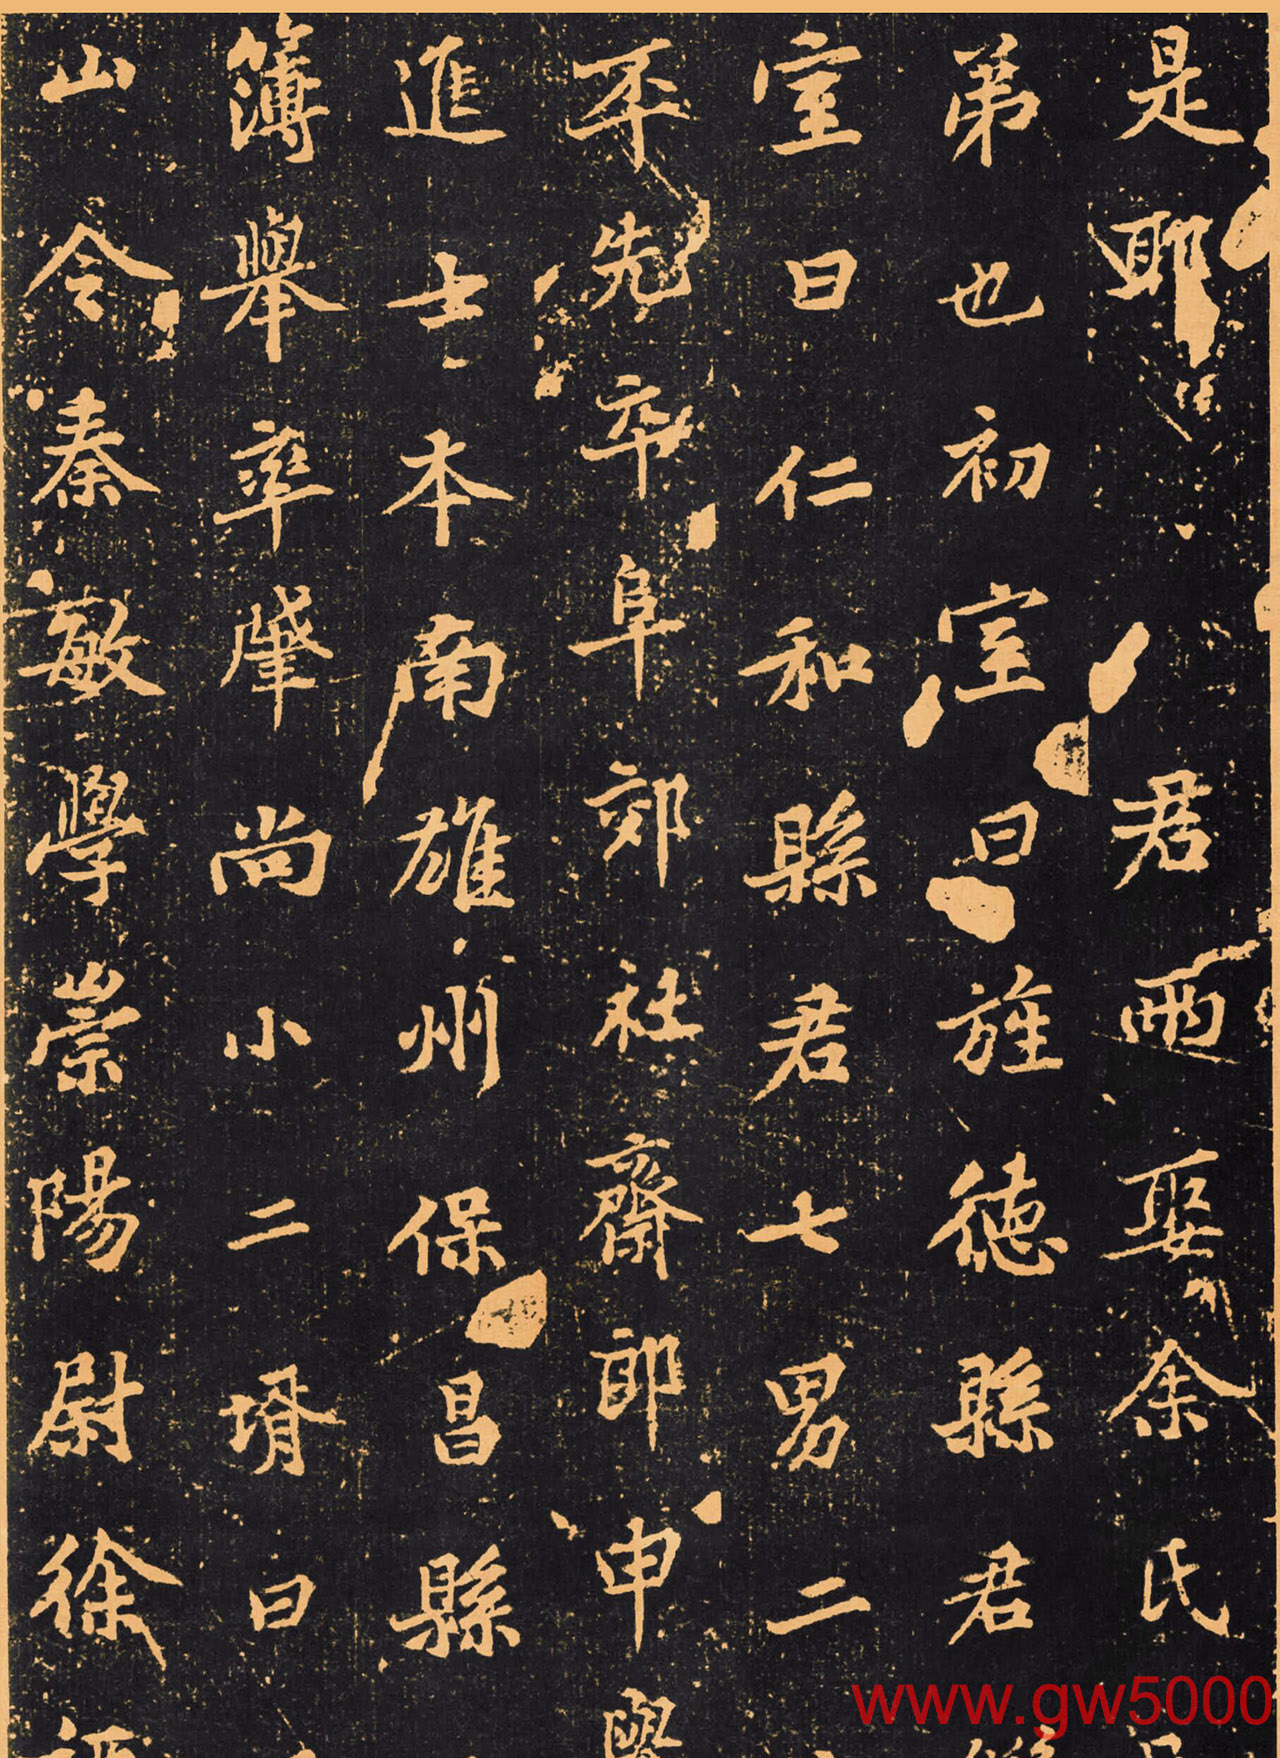 是耶君兩娶余氏
弟也初室曰旌德縣君
室曰仁和縣君七男二
不先卒阜郊社齋郎申舉
進士本南雄州保昌縣
簿舉率肇尚小二壻曰
山令秦敏學崇陽尉徐
www.gw5000